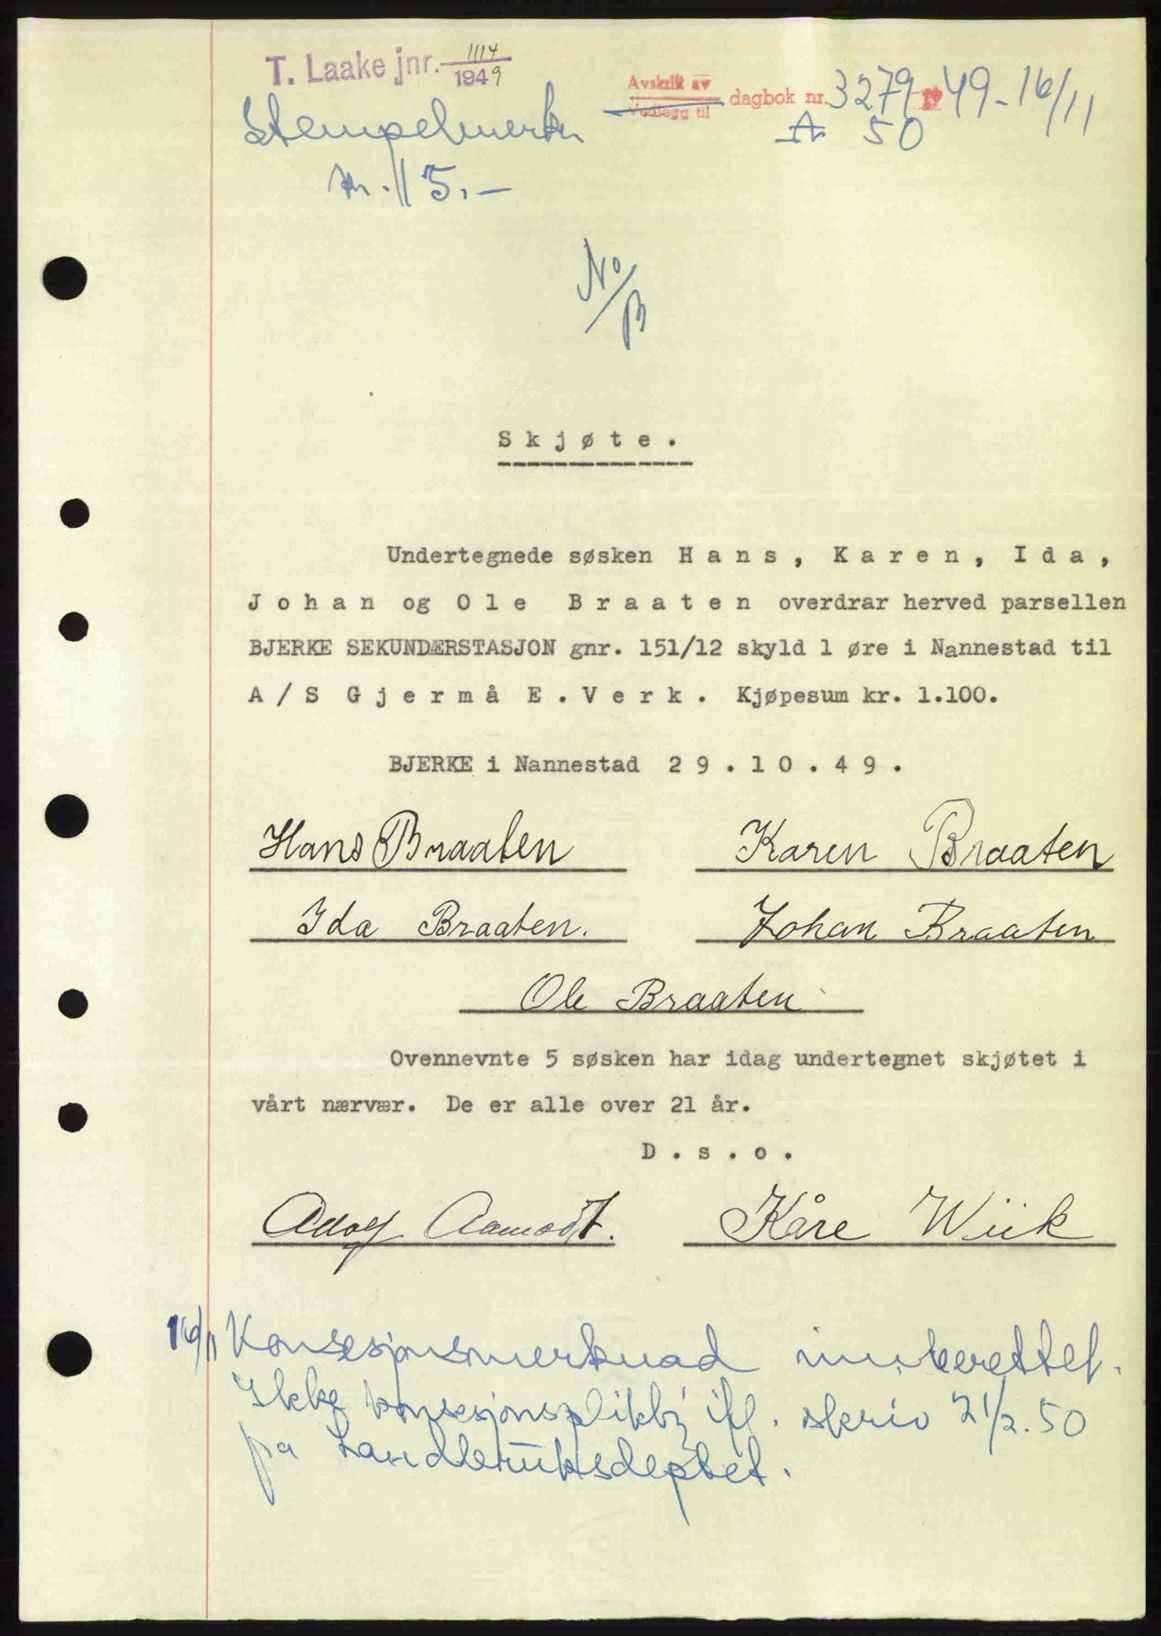 T. Laake jnr. 1114/1949
Avskrift av
Vedlegg til
dagbok nr. 3279 49-16/11
A 50
Stempelmerke
kr. 15.-
No/B
Skjøte.
Undertegnede søsken Hans, Karen, Ida,
Johan og Ole Braaten overdrar herved parsellen
BJERKE SEKUNDÆRSTASJON gnr. 151/12 skyld 1 øre i Nannestad til
A/S Gjermå E.Verk. Kjøpesum kr. 1.100.
BJERKE i Nannestad 29.10.49.
Hans Braaten Karen Braaten
Ida Braaten. Johan Braaten
Ole Braaten
Ovennevnte 5 søsken har idag undertegnet skjøtet i
vårt nærvær. De er alle over 21 år.
D.s.o.
Adolf Aamodt. Kåre Wiik
16/11 Konsesjonsmerknad innberettet.
Ikke konsesjonsplikt ifl. skriv 21/2.50
fra Landbruksdeptet.